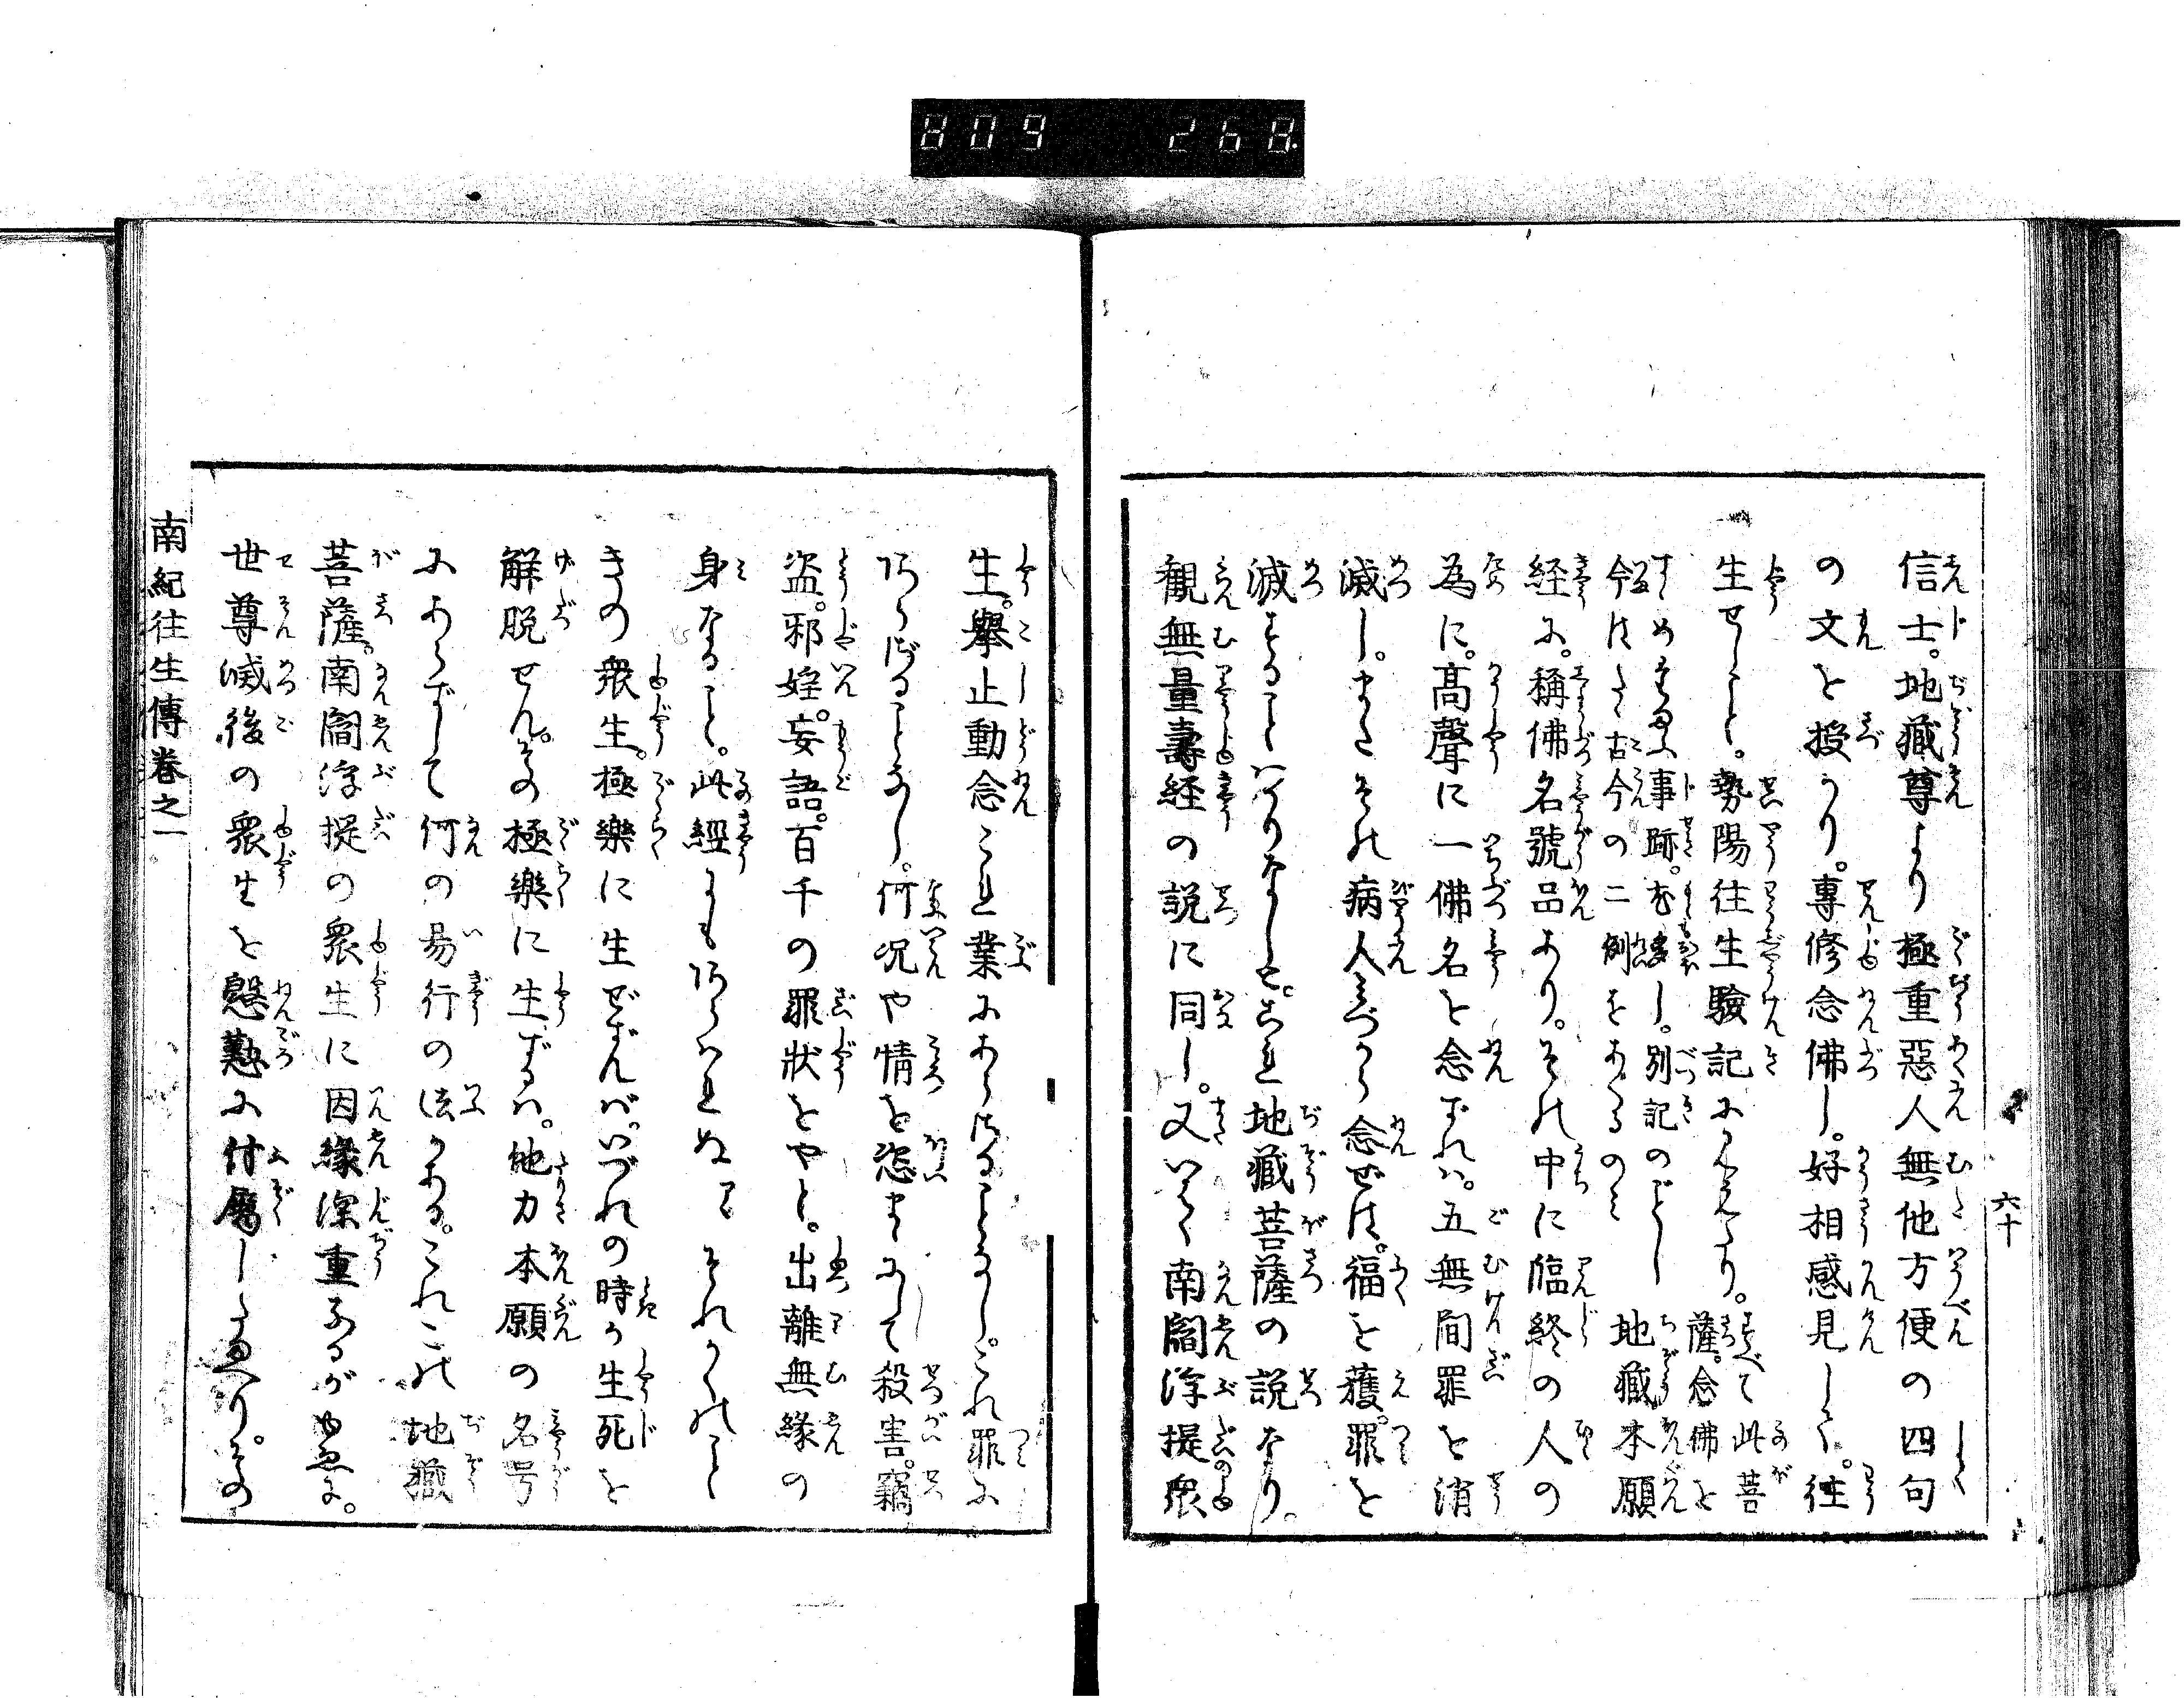 809 268
六十
信士。地藏尊より極重惡人無他方便の四句
の文を授かり。專修念佛し。好相感見して。往
生せしこと。勢陽往生驗記にみえたり。すべて此菩
薩。念佛を
すゝめたまふ事跡。尤多し。別記のごとし
今はたゞ古今の二例をあぐるのミ
地藏本願
経に。稱佛名號品あり。その中に臨終の人の
為に。髙聲に一佛名を念ずれバ。五無間罪を消
滅し。またその病人ミづから念ぜば。福を獲。罪を
滅することハりなしと。これ地藏菩薩の説なり。
観無量壽経の説に同し。又いはく南閻浮提衆
生。擧止動念これ業にあらざることなし。これ罪に
あらざることなし。何况や情を恣まにして殺害。竊
盗。邪婬。妄語。百千の罪狀をやと。出離無緣の
身なること。此經にもあらハれぬ
それかくのごと
きの衆生。極樂に生ぜずんバ。いづれの時か生死を
解脱せん。その極樂に生ずるハ。他力本願の名号
にあらずして何の易行の法かある。これこの地藏
菩薩。南閻浮提の衆生に因緣深重なるがゆゑに。
世尊滅後の衆生を慇懃に付属したまへり。その
南紀往生傳卷之一